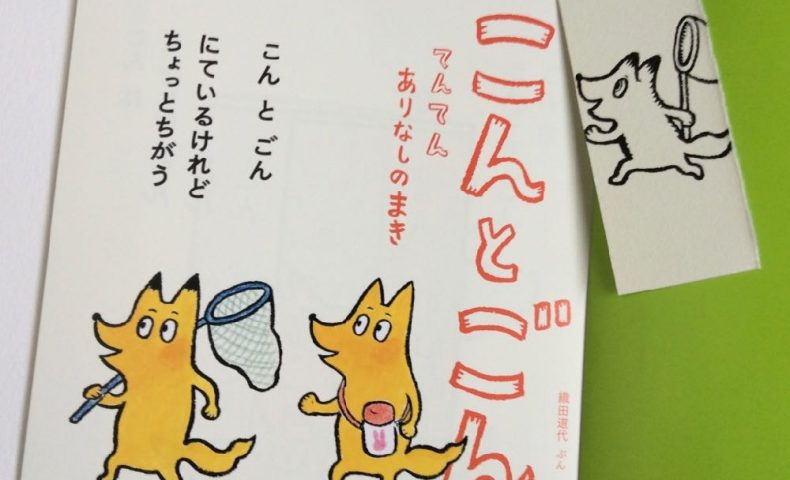 こんとごん
てんてん
ありなしのまき
織田道代 ぶん
こん と ごん
にているけれど
ちょっとちがう